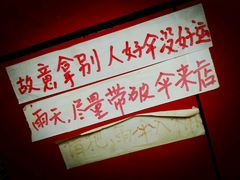 故意拿别人好伞没好运
雨天,尽量带破伞来店